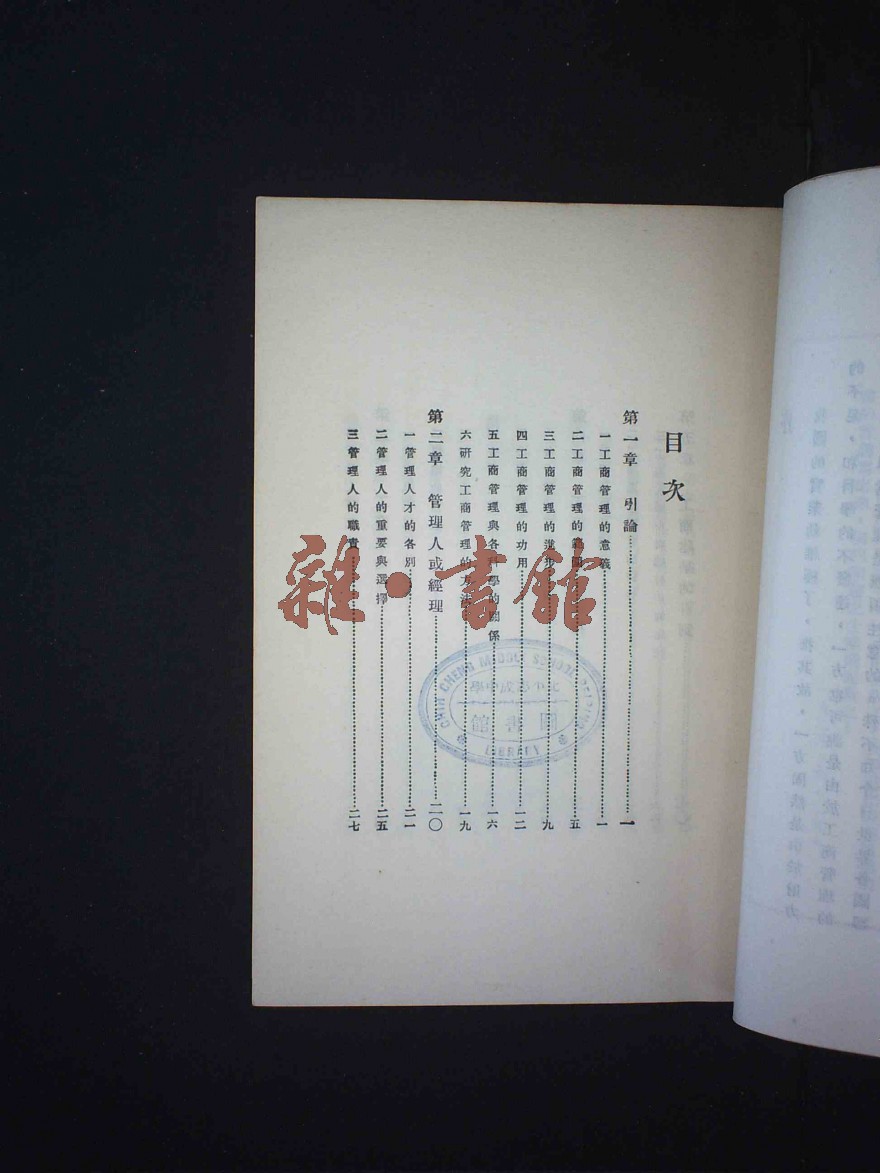 目次
第一章 引論……一
一 工商管理的意義……一
二 工商管理的範圍……五
三 工商管理的進步……九
四 工商管理的功用……一二
五 工商管理與各科學的關係……一六
六 研究工商管理的方法……一九
第二章 管理人或經理……二〇
一 管理人才的各別……二一
二 管理人的重要與選擇……二五
三 管理人的職責……二七
雜·書館
CHIH CHENG MIDDLE SCHOOL PEIPING
圖書館
LIBRARY